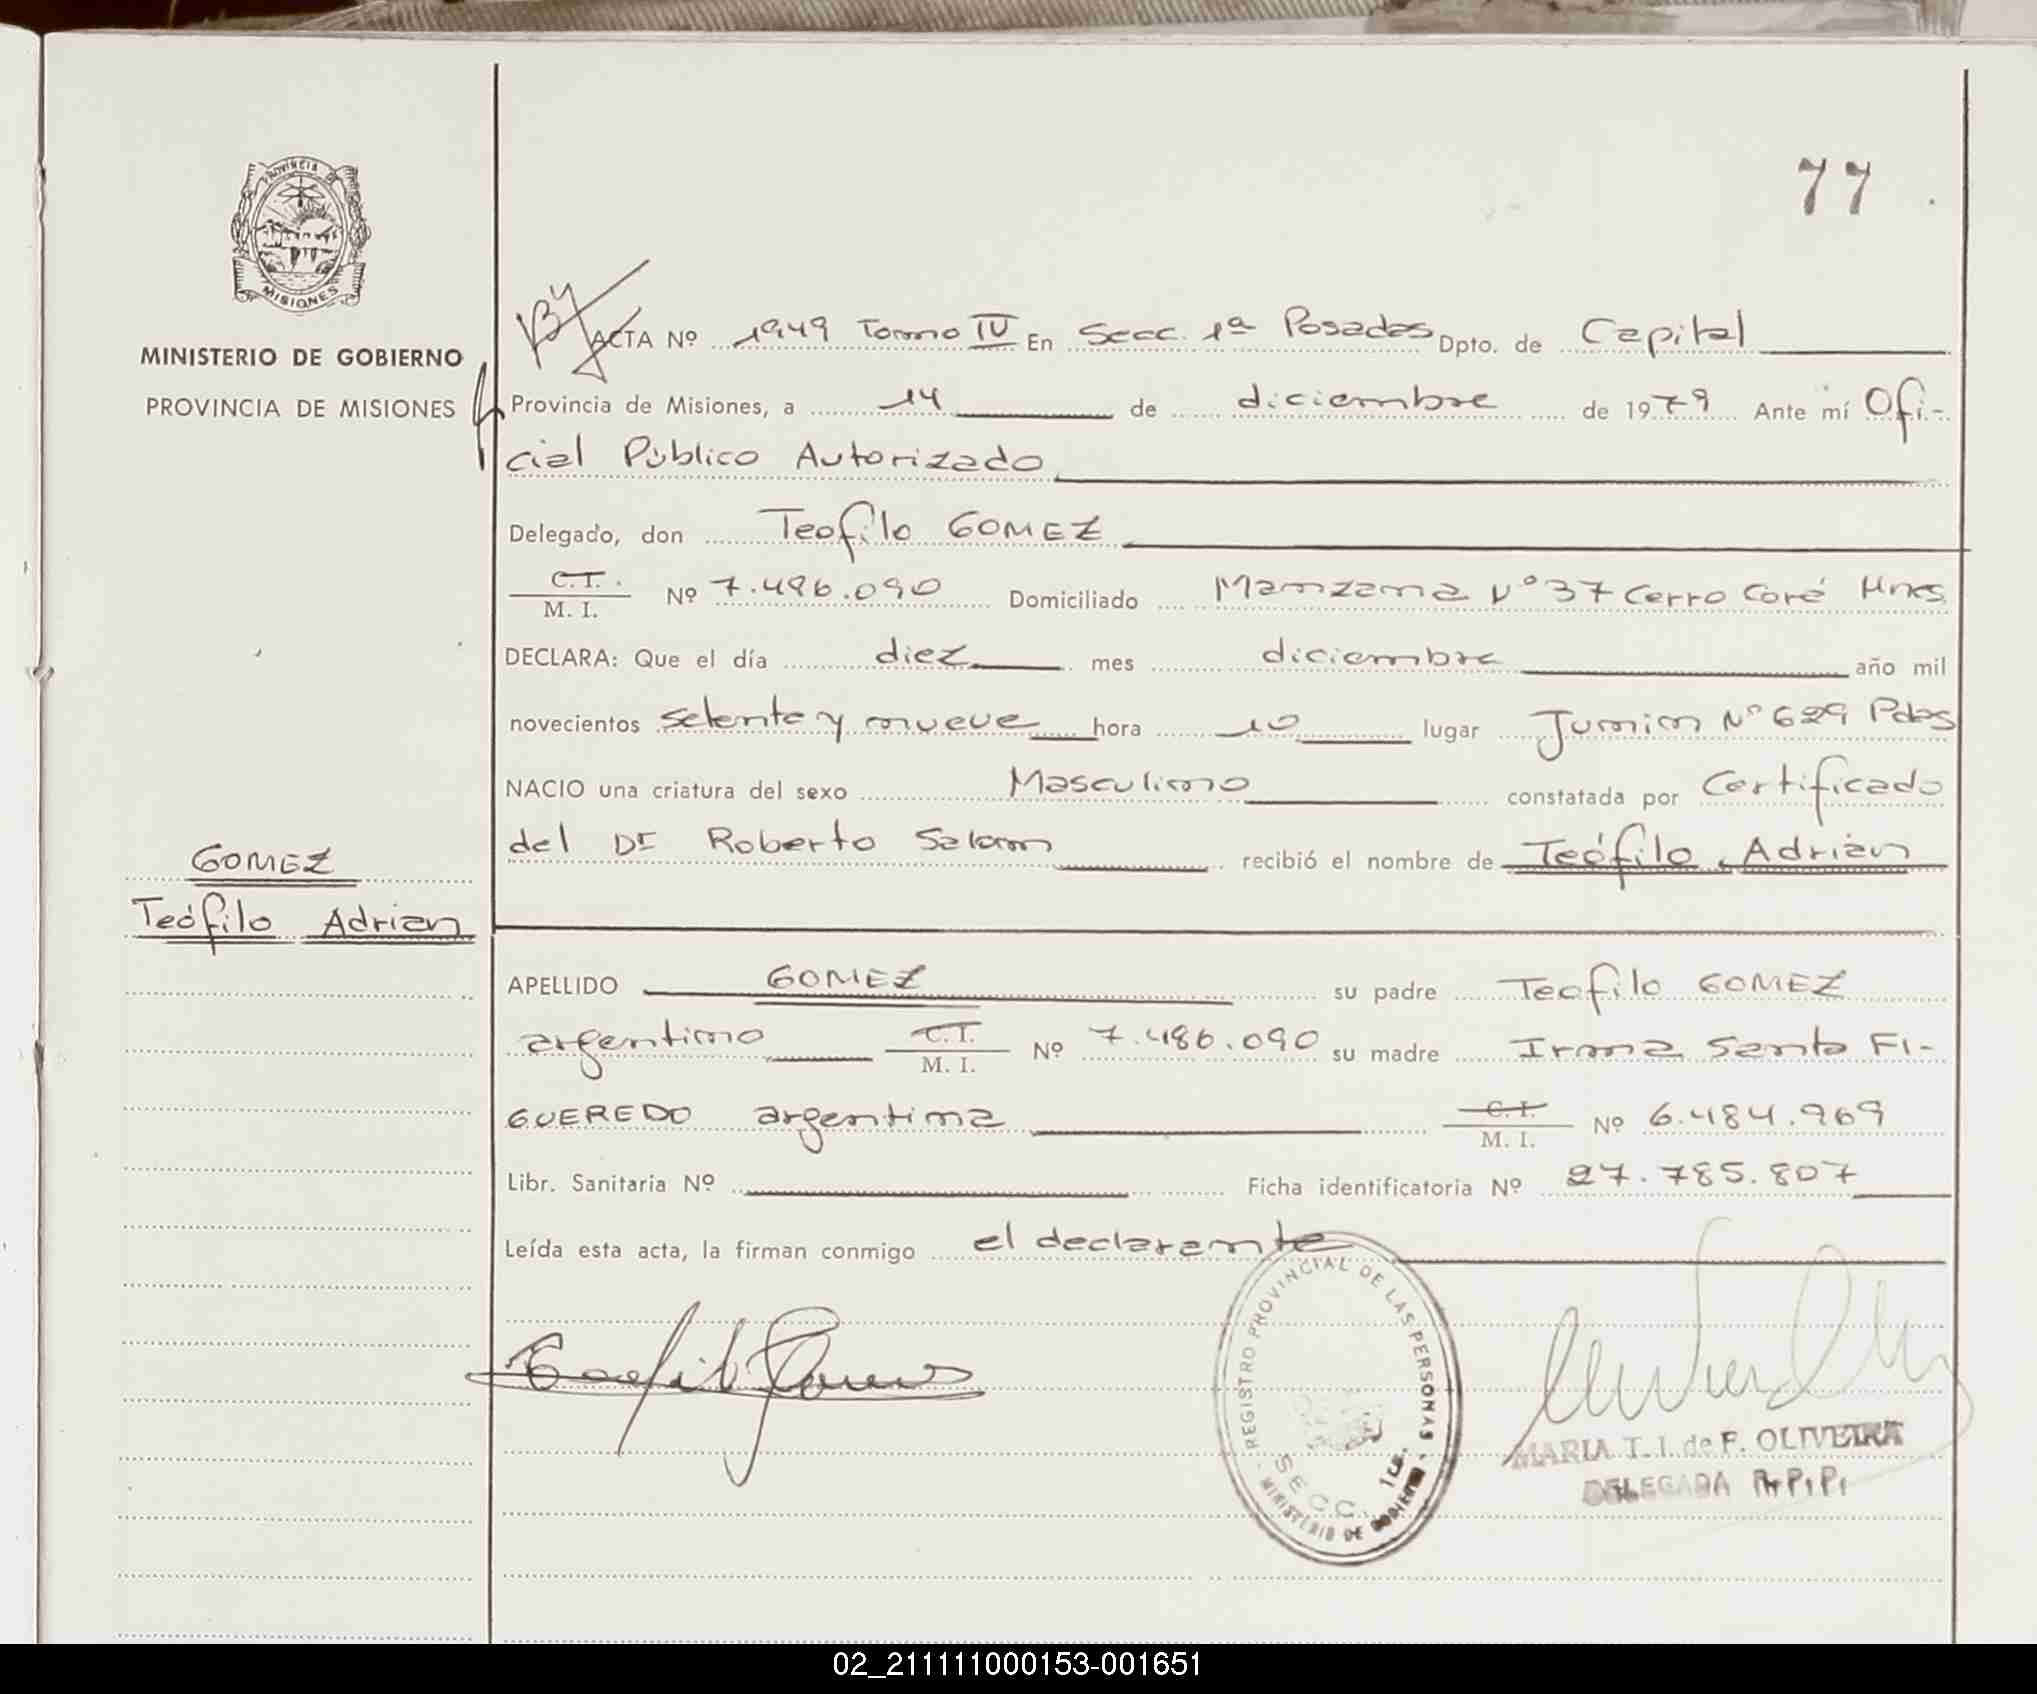 77
PROVINCIA DE
MISIONES
MINISTERIO DE GOBIERNO
PROVINCIA DE MISIONES
ACTA Nº 1949 Tomo IV En Secc. 1ª Posadas Dpto. de Capital
Provincia de Misiones, a 14 de diciembre de 1979 Ante mí Ofi-
cial Público Autorizado
Delegado, don Teofilo GOMEZ
C.I.
M. I. Nº 7.486.090 Domiciliado Manzana Nº 37 Cerro Coré Mnes
DECLARA: Que el día diez mes diciembre año mil
novecientos setenta y nueve hora 10 lugar Junin Nº 629 Pdas
NACIO una criatura del sexo Masculino constatada por Certificado
del Dr Roberto Salom recibió el nombre de Teófilo Adrian
GOMEZ
Teófilo Adrian
APELLIDO GOMEZ su padre Teofilo GOMEZ
argentino C.I.
M. I. Nº 7.486.090 su madre Irma Santa FI-
GUEREDO argentina C.I.
M. I. Nº 6.484.969
Libr. Sanitaria Nº Ficha identificatoria Nº 27.785.807
Leída esta acta, la firman conmigo el declarante
REGISTRO PROVINCIAL DE LAS PERSONAS
SECC. 1ra.
MINISTERIO DE GOBIERNO
MARIA T. I. de F. OLIVEIRA
DELEGADA R.P.P.
02_211111000153-001651